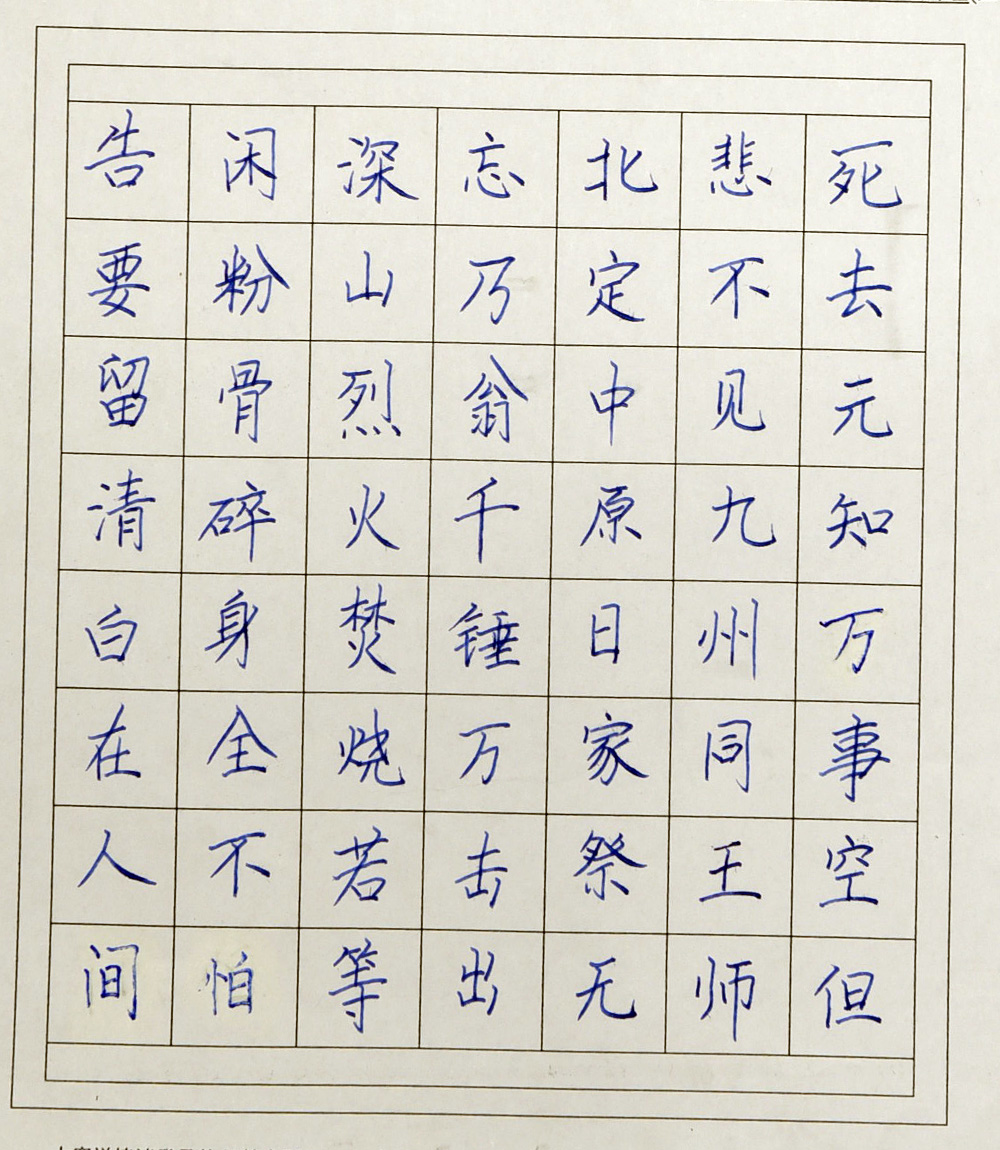 死去元知万事空但
悲不见九州同王师
北定中原日家祭无
忘乃翁千锤万击出
深山烈火焚烧若等
闲粉骨碎身全不怕
告要留清白在人间